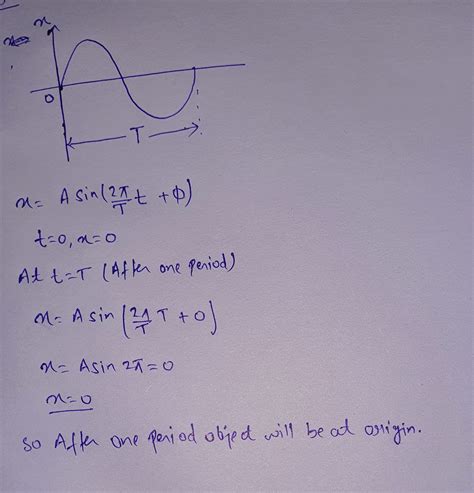 x
O
T
x = A sin(2π/T t + φ)
t=0, x=0
At t=T (After one period)
x = A sin (2π/T T + 0)
x = A sin 2π = 0
x=0
so After one period object will be at origin.